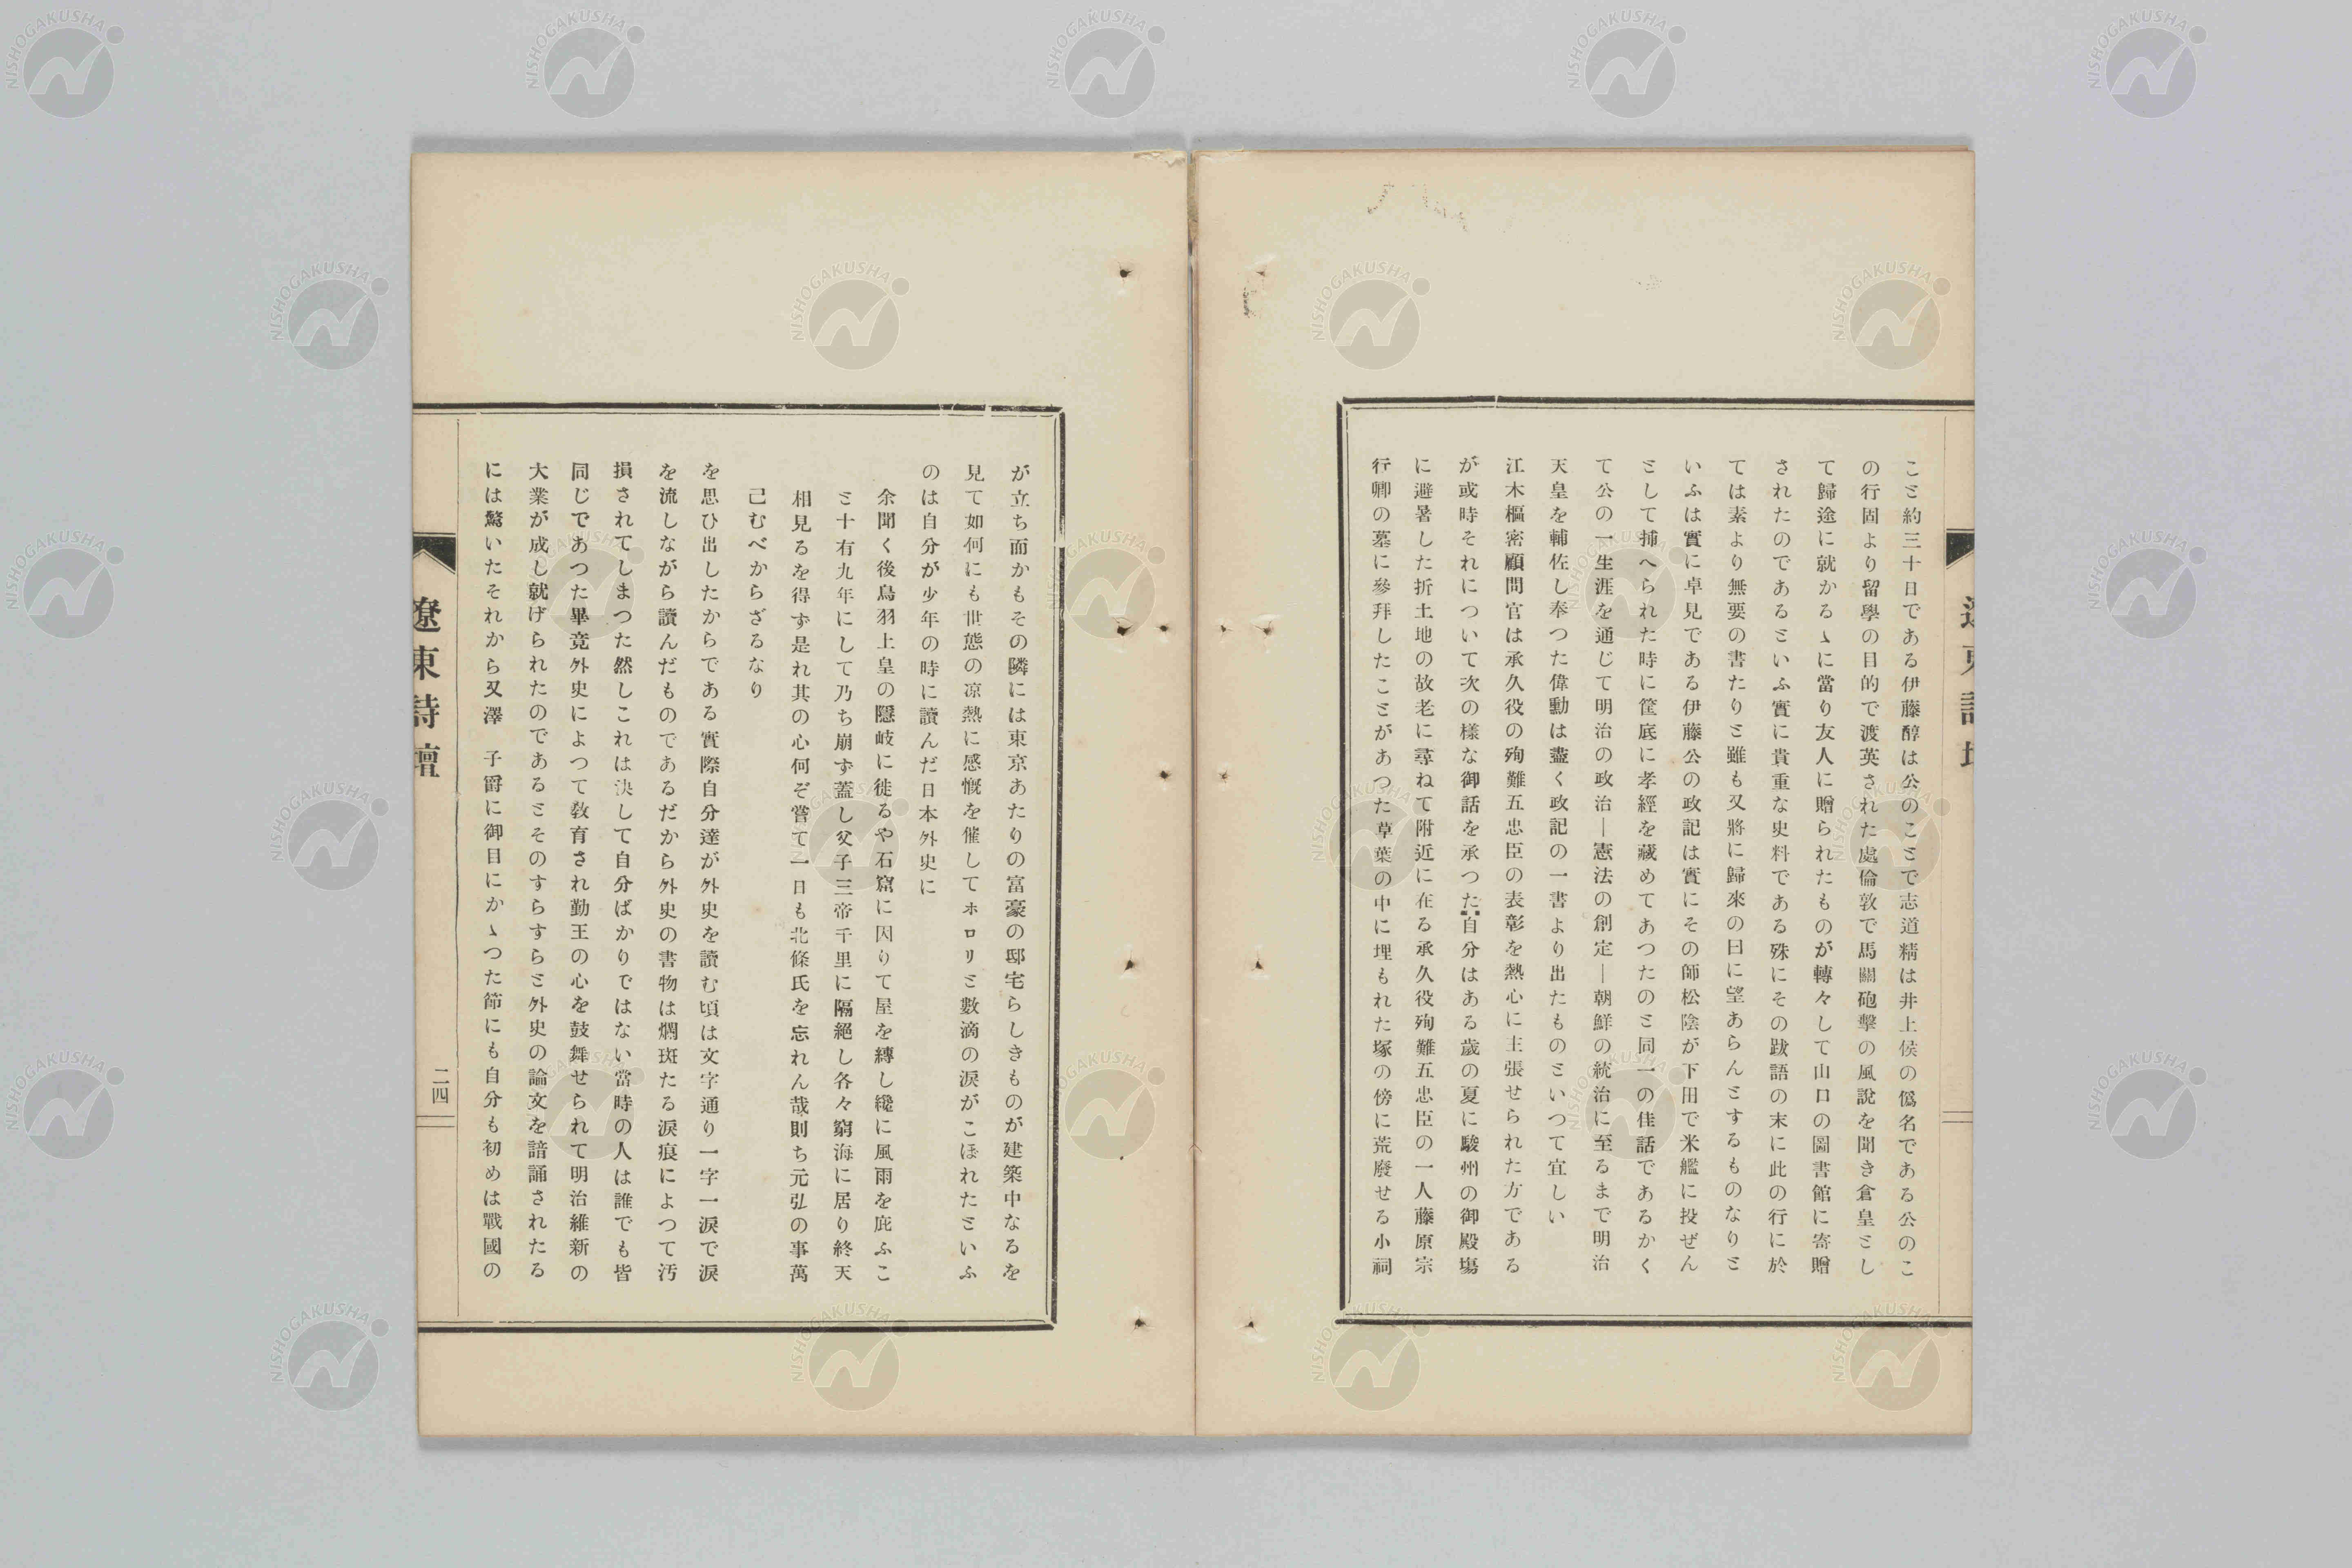 こと約三十日である伊藤醇は公のことで志道精は井上侯の僞名である公のこ
の行固より留學の目的で渡英された處倫敦で馬關砲擊の風說を聞き倉皇とし
て歸途に就かるゝに當り友人に贈られたものが轉々して山口の圖書館に寄贈
されたのであるといふ實に貴重な史料である殊にその跋語の末に此の行に於
ては素より無要の書たりと雖も又將に歸來の日に望あらんとするものなりと
いふは實に卓見である伊藤公の政記は實にその師松陰が下田で米艦に投ぜん
として捕へられた時に筐底に孝經を藏めてあつたのと同一の佳話であるかく
て公の一生涯を通じて明治の政治―憲法の創定―朝鮮の統治に至るまで明治
天皇を輔佐し奉つた偉勳は盡く政記の一書より出たものといつて宜しい
江木樞密顧問官は承久役の殉難五忠臣の表彰を熱心に主張せられた方である
が或時それについて次の樣な御話を承つた自分はある歲の夏に駿州の御殿塲
に避暑した折土地の故老に尋ねて附近に在る承久役殉難五忠臣の一人藤原宗
行卿の墓に參拜したことがあつた草葉の中に埋もれた塚の傍に荒廢せる小祠
が立ち面かもその隣には東京あたりの富豪の邸宅らしきものが建築中なるを
見て如何にも世態の凉熱に感慨を催してホロリと數滴の涙がこぼれたといふ
のは自分が少年の時に讀んだ日本外史に
余聞く後鳥羽上皇の隱岐に徙るや石窟に因りて屋を縛し纔に風雨を庇ふこ
と十有九年にして乃ち崩ず蓋し父子三帝千里に隔絕し各々窮海に居り終天
相見るを得ず是れ其の心何ぞ嘗て一日も北條氏を忘れん哉則ち元弘の事萬
己むべからざるなり
を思ひ出したからである實際自分達が外史を讀む頃は文字通り一字一涙で涙
を流しながら讀んだものであるだから外史の書物は爛斑たる涙痕によつて汚
損されてしまつた然しこれは決して自分ばかりではない當時の人は誰でも皆
同じであつた畢竟外史によつて敎育され勤王の心を鼓舞せられて明治維新の
大業が成し就げられたのであるとそのすらすらと外史の論文を諳誦されたる
には驚いたそれから又澤　子爵に御目にかゝつた節にも自分も初めは戰國の
遼東詩壇
二四